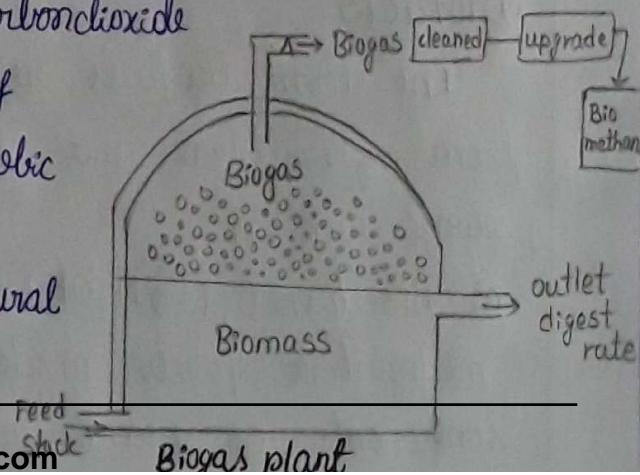 rbondioxide
f
obic
ural
Biogas
cleaned
upgrade
Bio
methan
Biogas
Biomass
outlet
digest
rate
Feed
stock
Biogas plant
com